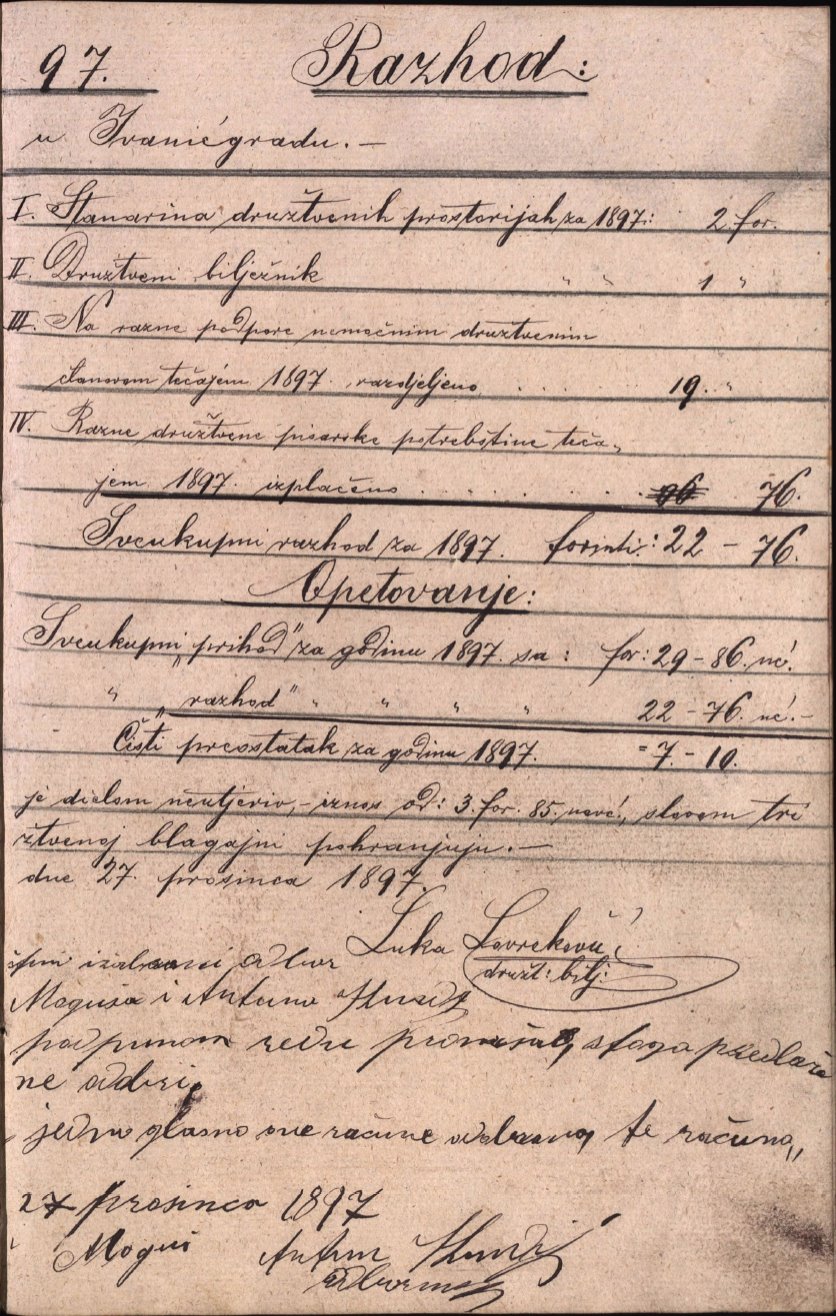 97. Razhod:
u Ivanićgradu. —
I. Stanarina družtvenih prostorijah za 1897: 2. for.
II. Družtveni bilježnik " " 1 "
III. Na razne podpore nemoćnim družtvenim
članovom tečajem 1897. razdjeljeno . . . . 19. "
IV. Razne družtvene pisarske potrebštine teča„
jem 1897. izplaćeno . . . . . . . 76.
Sveukupni razhod za 1897. forinti: 22 — 76.
Opetovanje:
Sveukupni „prihod" za godinu 1897. sa: for: 29 — 86. nč.
" „razhod" " " " " 22 — 76. nč. —
Čisti preostatak za godinu 1897. = 7. — 10.
je dielom neutjeriv, — iznos od: 3. for. 85. novč., slovom tri
žtvenoj blagajni pohranjuju. —
dne 27. prosinca 1897.
Luka Lovreković
družt: bilj:
izabrani odbor
Moguša i Antuna
podpunom redu pronašao, stoga predlaže
ne odbri
jedno glasno ove račune odobrava, te računo„
27 prosinca 1897
Moguš Antun